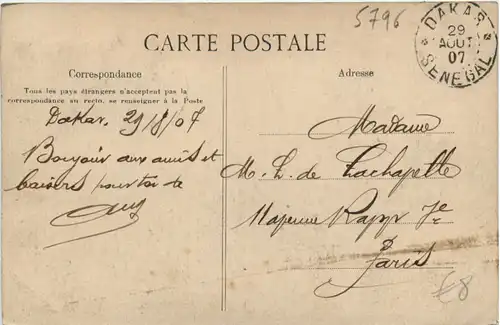 5796
DAKAR
29
AOUT
07
SENEGAL
CARTE POSTALE
Correspondance
Tous les pays étrangers n'acceptent pas la
correspondance au recto, se renseigner à la Poste
Dakar, 29/8/07
Bonjour aux amis et
baisers pour toi de
Adresse
Madame
M. L. de Lachapelle
Rapp 7e
Paris
€8